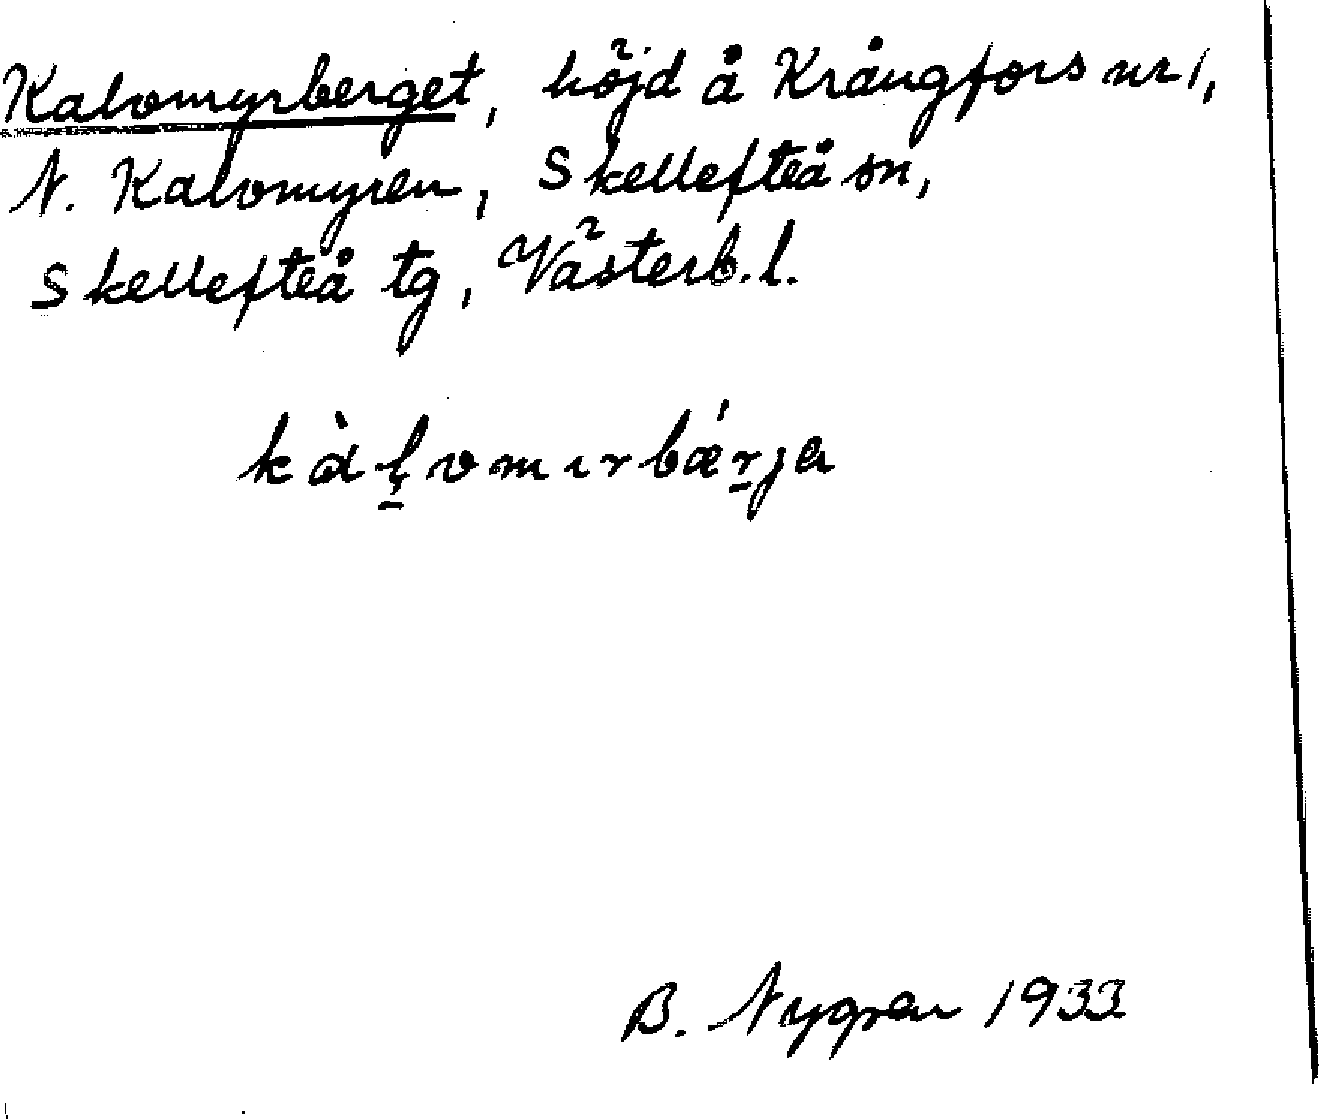 Kalvmyrberget, höjd å Krångfors nr 1,
N. Kalvmyren, Skellefteå sn,
Skellefteå tg, Västerb. l.
kàḷvmırbǽrja
B. Nygren 1933